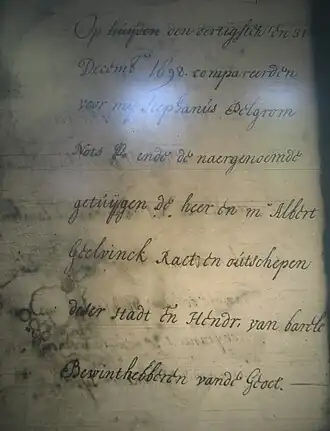 Op huijden den dertigsten en 31
Decemb.r 1698 compareerden
voor mij Stephanus Pelgrom
Nots P.s ende de naergenoemde
getuijgen De heer en m.r Albert
Geelvinck Raet en oútschepen
deser stadt en Hendr. van baerle
Bewinthebberen vande Geoct.